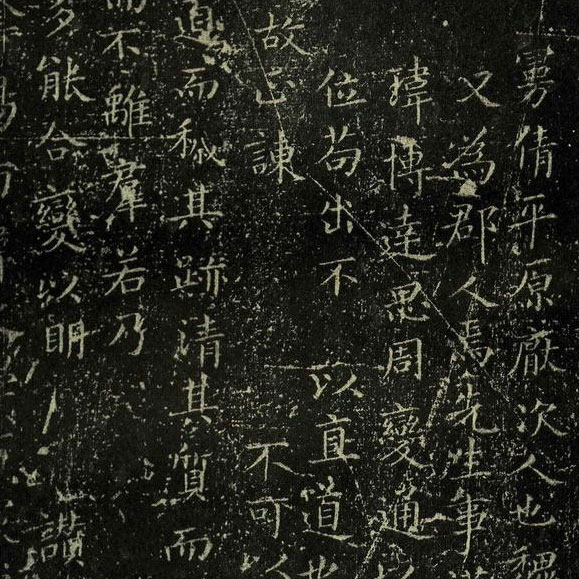 曼倩平原厭次人也魏
又為郡人焉先生事
瑋博達思周變通以
位苟出不以直道也
故正諫不可以
道而穢其跡清其質而
而不離群若乃
多能合變以明讚